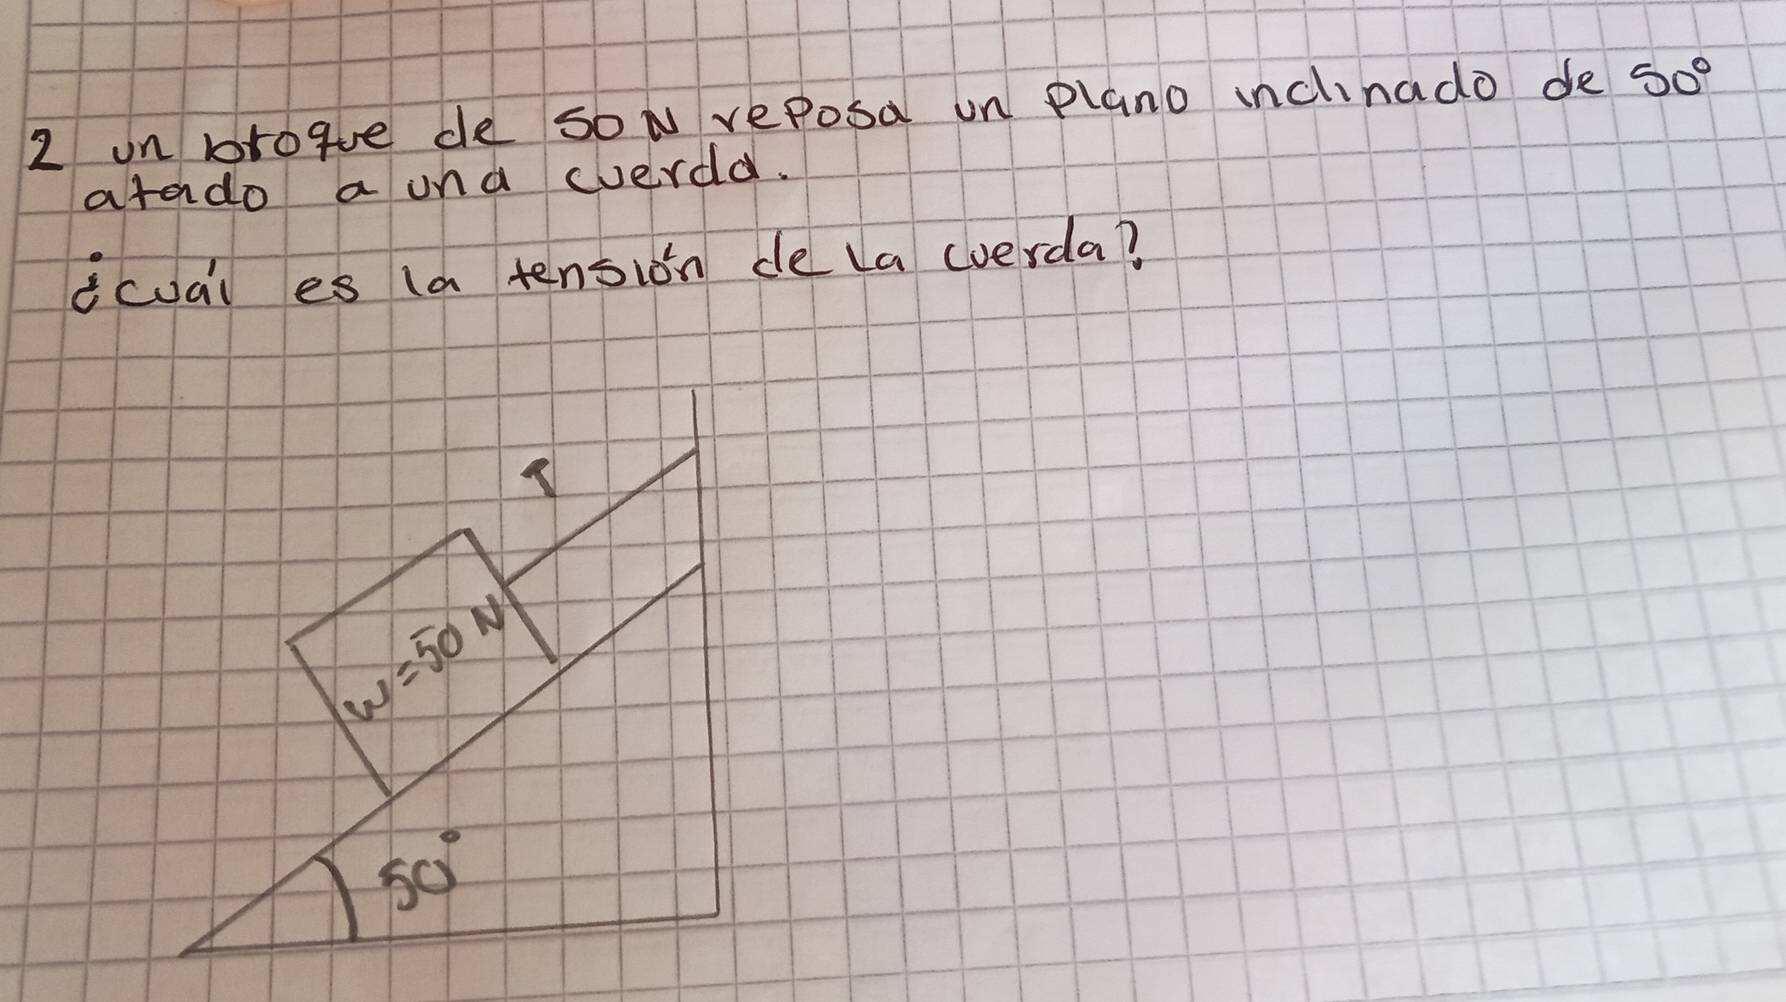 2 un broque de 50 N reposa un plano inclinado de 50°
atado a una cuerda.
¿cuál es la tensión de la cuerda?
T
W=50 N
50°